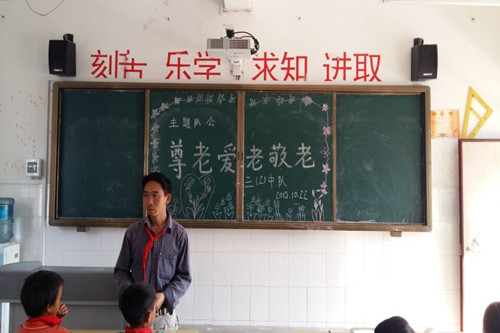 刻苦 乐学 求知 进取
主题队会
尊老爱老敬老
三(2)中队
2013.10.22